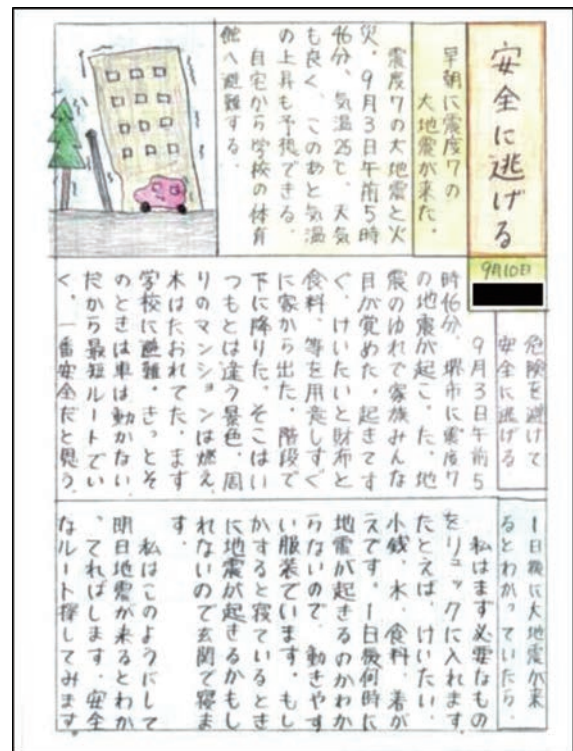 安全に逃げる
9月10日
早朝に震度7の
大地震が来た。
震度7の大地震と火
災。9月3日午前5時
46分、気温25℃、天気
も良く、このあと気温
の上昇も予想できる。
自宅から学校の体育
館へ避難する。
危険を避けて
安全に逃げる
9月3日午前5
時46分、堺市に震度7
の地震が起こった。地
震のゆれで家族みんな
目が覚めた。起きてす
ぐ、けいたいと財布と
食料、等を用意しすぐ
に家から出た。階段で
下に降りた。そこはい
つもとは違う景色。周
りのマンションは燃え、
木はたおれてた。まず
学校に避難。きっとそ
のときは車は動かない。
だから最短ルートでい
く。一番安全だと思う。
1日後に大地震が来
るとわかっていたら。
私はまず必要なもの
をリュックに入れます。
たとえば、けいたい、
小銭、水、食料、着が
えです。1日後何時に
地震が起きるのかわか
らないので、動きやす
い服装でいます。もし
かすると寝ているとき
に地震が起きるかもし
れないので玄関で寝ま
す。
私はこのようにして
明日地震が来るとわか
ってればします。安全
なルート探してみます。